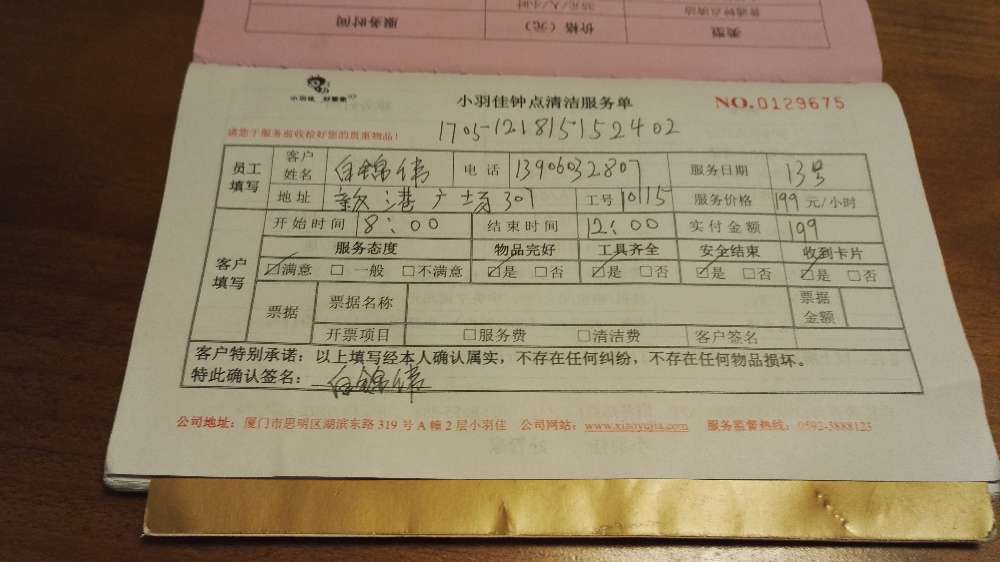 普通钟点清洁 35元/人/小时
类型 价格（元） 服务时间
小羽佳 好管家
小羽佳钟点清洁服务单 NO.0129675
请您于服务前收检好您的贵重物品！ 1705-121815152402
员工填写 客户姓名 白锦伟 电话 13906032807 服务日期 13号
地址 新港广场307 工号 10115 服务价格 199 元/小时
客户填写 开始时间 8:00 结束时间 12:00 实付金额 199
服务态度 物品完好 工具齐全 安全结束 收到卡片
☑满意 □一般 □不满意 ☑是 □否 ☑是 □否 ☑是 □否 ☑是 □否
票据 票据名称 票据金额
开票项目 □服务费 □清洁费 客户签名
客户特别承诺：以上填写经本人确认属实，不存在任何纠纷，不存在任何物品损坏。
特此确认签名： 白锦伟
公司地址：厦门市思明区湖滨东路 319 号 A 幢 2 层小羽佳 公司网站：www.xiaoyujia.com 服务监督热线：0592-3888123